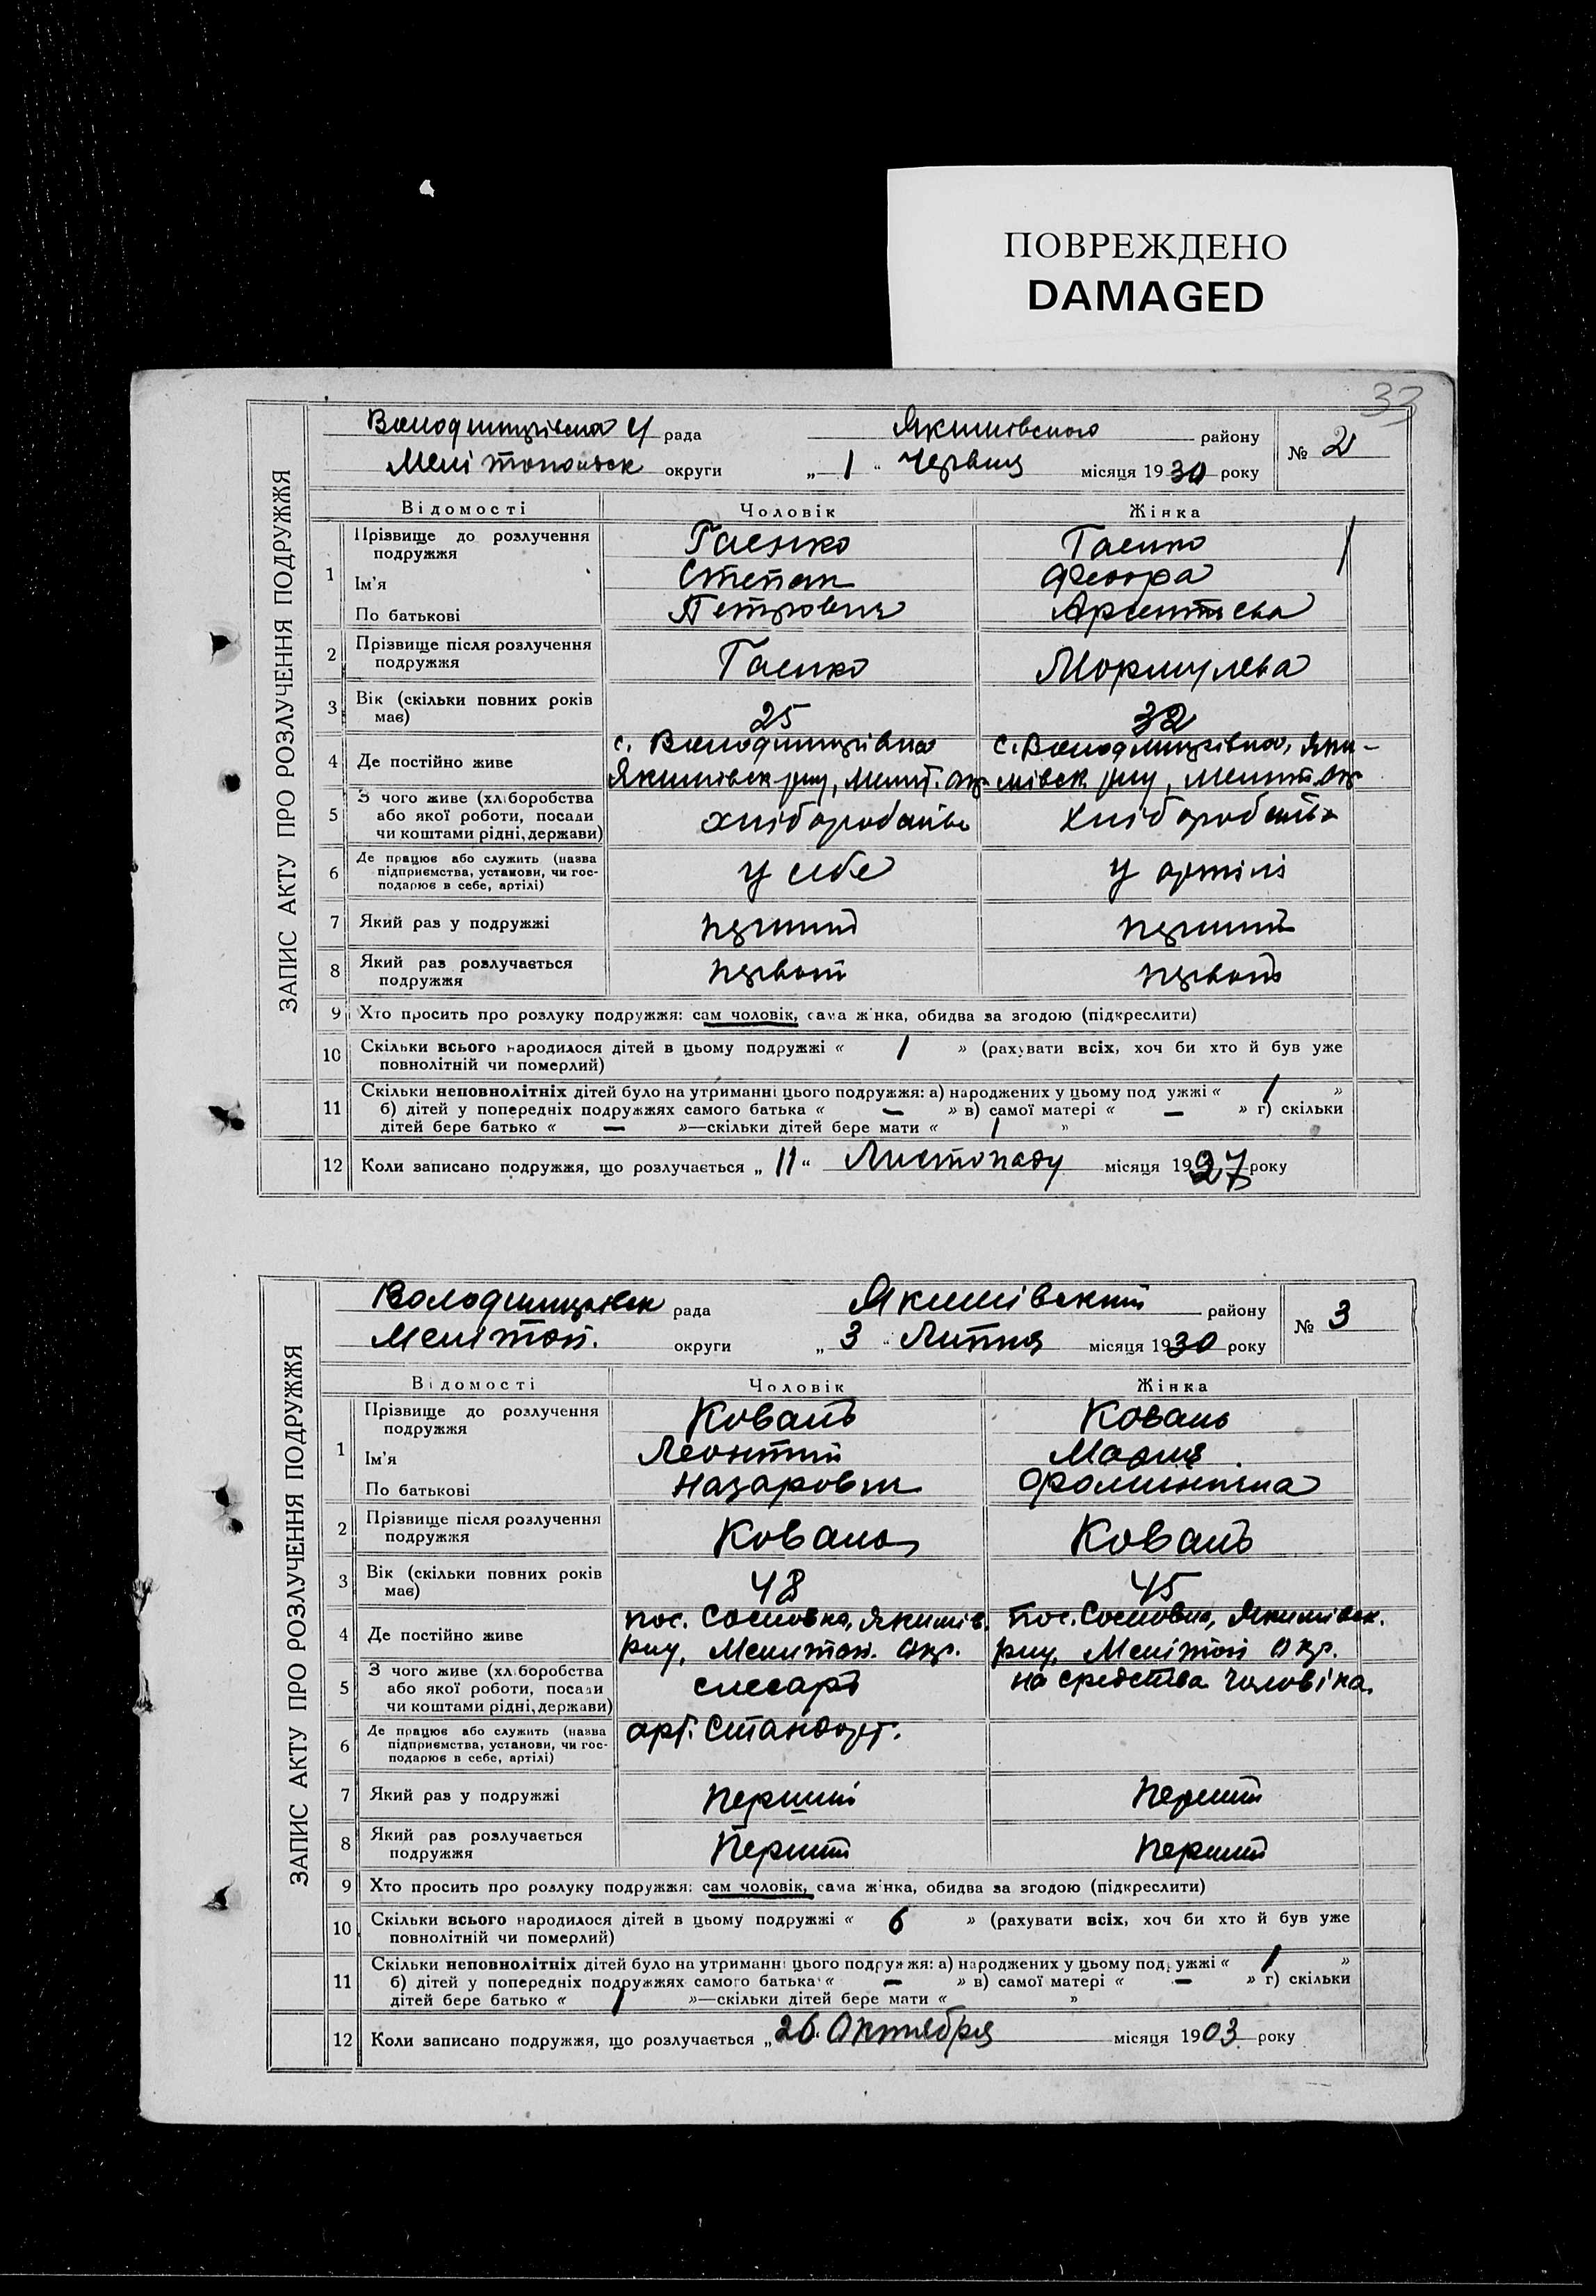 ПОВРЕЖДЕНО
DAMAGED
33
ЗАПИС АКТУ ПРО РОЗЛУЧЕННЯ ПОДРУЖЖЯ
рада Якимівського району
№ 2
округи „ 1 “ Червня місяця 1930 року
Відомості Чоловік Жінка
1 Прізвище до розлучення подружжя Гаенко Гаенко
Ім'я Степан Феодра
По батькові Петрович
2 Прізвище після розлучення подружжя Гаенко
3 Вік (скільки повних років має) 25 32
4 Де постійно живе с. Володимирівка с. Володимирівка, Яки-
Якимівск р-ну, Меліт. окр. мівск р-ну, Меліт. окр.
5 З чого живе (хліборобства або якої роботи, посади чи коштами рідні, держави) хліборобство хліборобство
6 Де працює або служить (назва підприємства, установи, чи господарює в себе, артілі) у себе у артілі
7 Який раз у подружжі перший перший
8 Який раз розлучається подружжя
9 Хто просить про розлуку подружжя: сам чоловік, сама жінка, обидва за згодою (підкреслити)
10 Скільки всього народилося дітей в цьому подружжі « 1 » (рахувати всіх, хоч би хто й був уже
повнолітній чи померлий)
11 Скільки неповнолітніх дітей було на утриманні цього подружжя: а) народжених у цьому подружжі « 1 »
б) дітей у попередніх подружжях самого батька « — » в) самої матері « — » г) скільки
дітей бере батько « — »—скільки дітей бере мати « 1 »
12 Коли записано подружжя, що розлучається „ 11 “ Листопаду місяця 1927 року
ЗАПИС АКТУ ПРО РОЗЛУЧЕННЯ ПОДРУЖЖЯ
Володимирівск рада Якимівский району
№ 3
Меліт оп. округи „ 3 “ Липня місяця 1930 року
Відомості Чоловік Жінка
1 Прізвище до розлучення подружжя Коваль Коваль
Ім'я Леонтий Мария
По батькові Назарович
2 Прізвище після розлучення подружжя Коваль Коваль
3 Вік (скільки повних років має) 48 45
4 Де постійно живе пос. Сосновка, Якимів. пос. Сосновка, Якимівск.
р-ну, Мелитоп. Окр. р-ну, Мелітоп Окр.
5 З чого живе (хліборобства або якої роботи, посади чи коштами рідні, держави) слесарь на средства чоловіка.
6 Де працює або служить (назва підприємства, установи, чи господарює в себе, артілі) арт. Стандарт.
7 Який раз у подружжі Перший Перший
8 Який раз розлучається подружжя Перший Перший
9 Хто просить про розлуку подружжя: сам чоловік, сама жінка, обидва за згодою (підкреслити)
10 Скільки всього народилося дітей в цьому подружжі « 6 » (рахувати всіх, хоч би хто й був уже
повнолітній чи померлий)
11 Скільки неповнолітніх дітей було на утриманні цього подружжя: а) народжених у цьому подружжі « 1 »
б) дітей у попередніх подружжях самого батька « — » в) самої матері « — » г) скільки
дітей бере батько « 1 »—скільки дітей бере мати « »
12 Коли записано подружжя, що розлучається „ 26. Октября місяця 1903 року